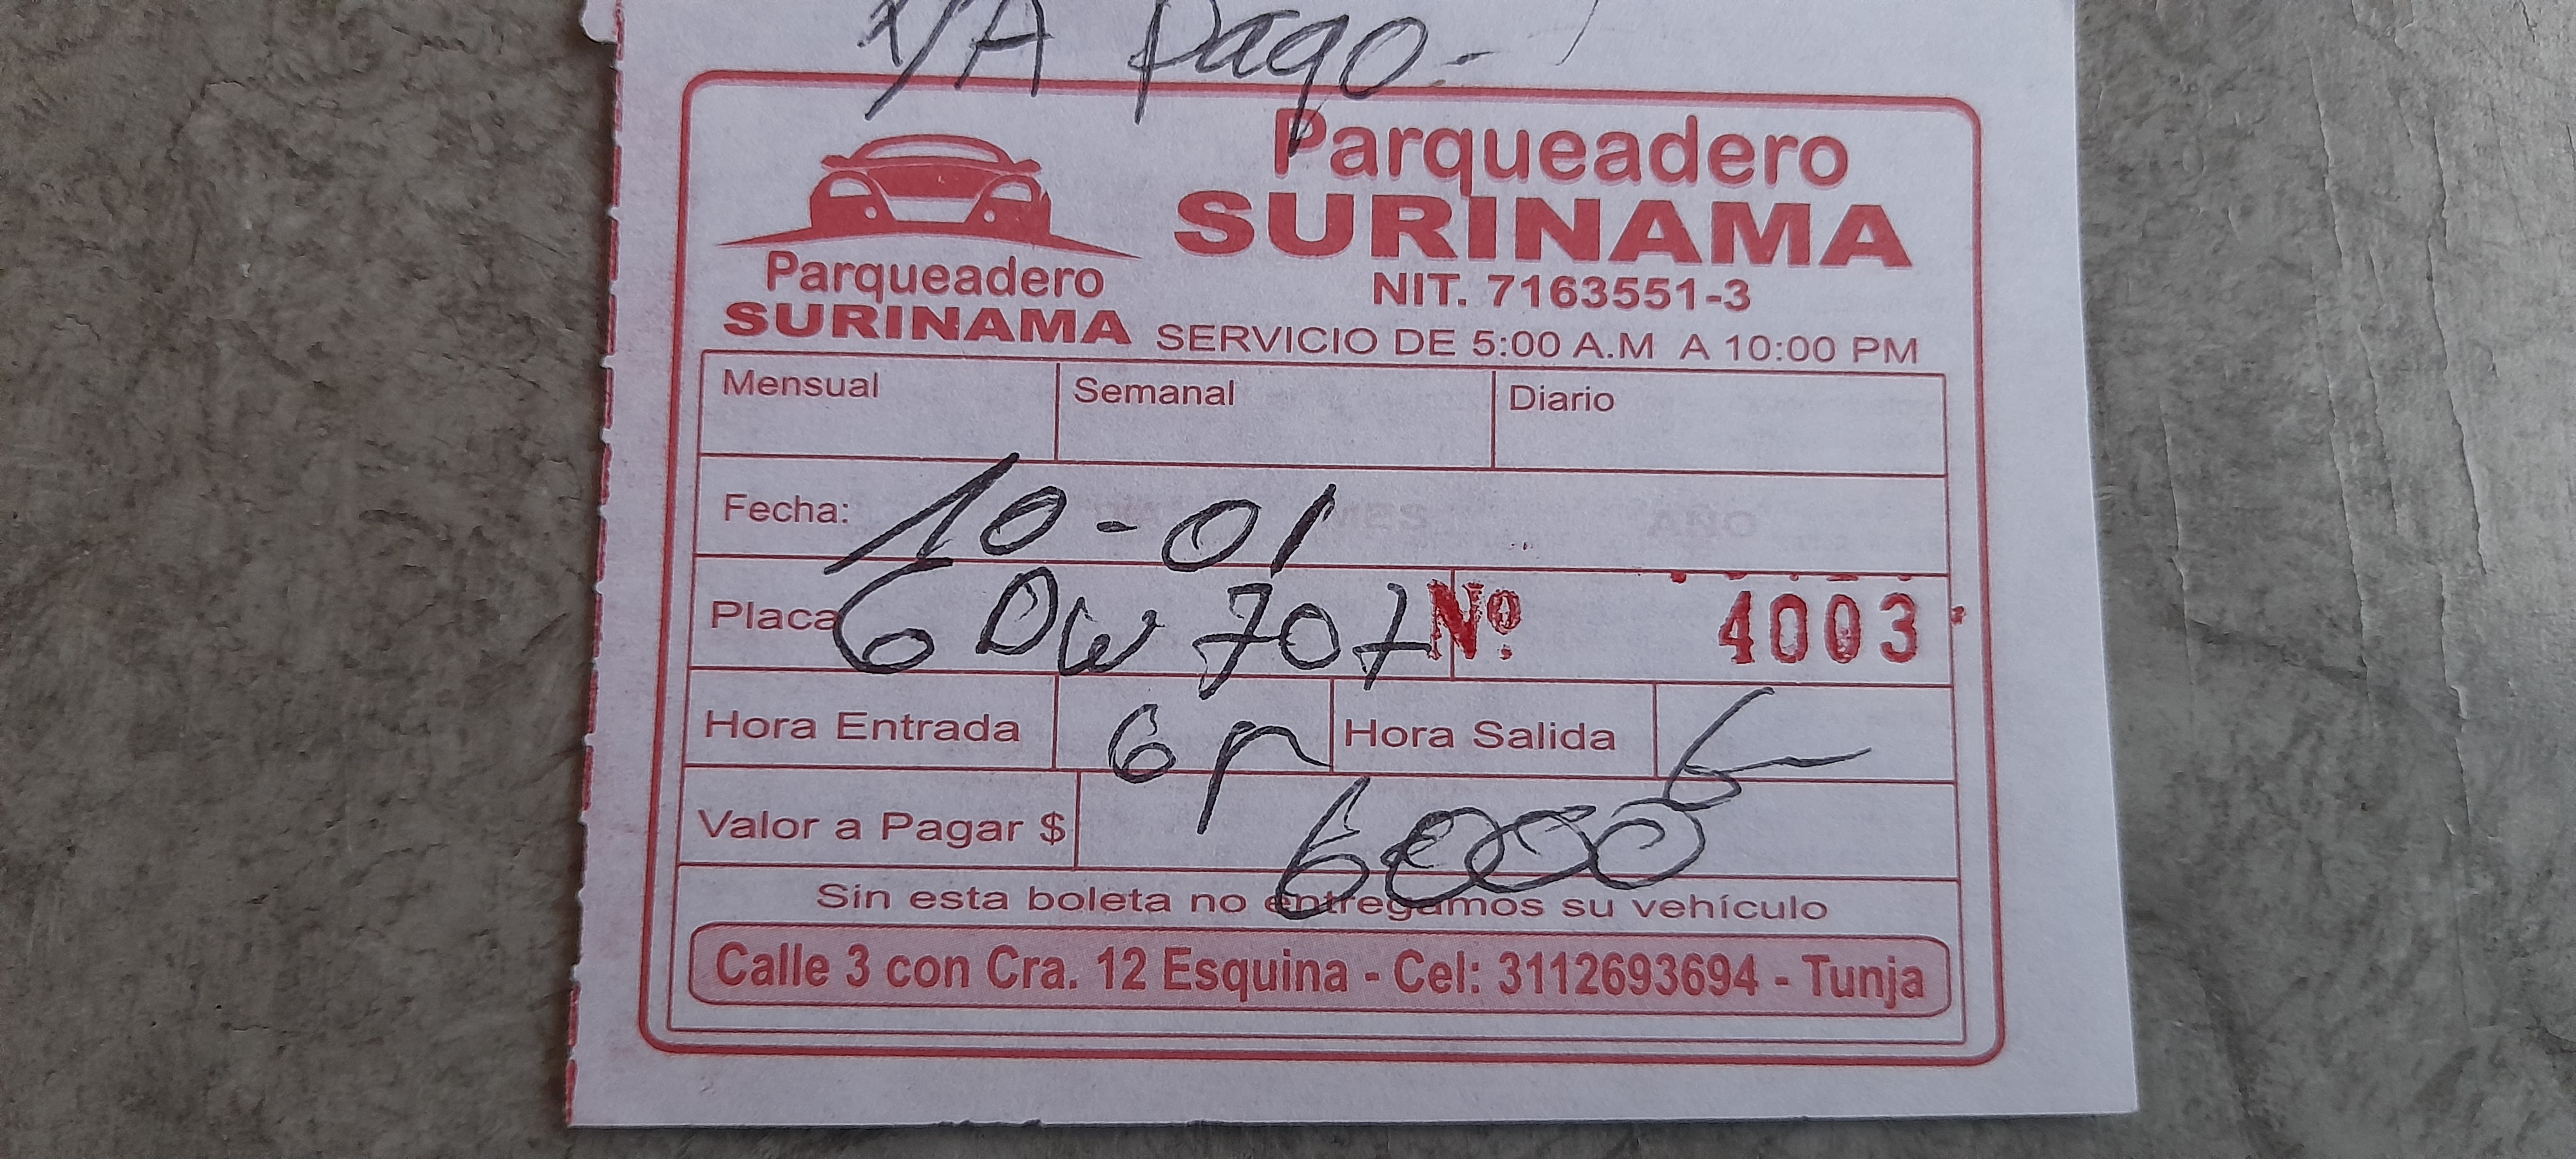 Y/A pago.-
Parqueadero
SURINAMA
NIT. 7163551-3
Parqueadero
SURINAMA
SERVICIO DE 5:00 A.M A 10:00 PM
Mensual Semanal Diario
Fecha: 10-01
Placa 6DW 707 Nº. 4003
Hora Entrada 6 p Hora Salida
Valor a Pagar $ 6000
Sin esta boleta no entregamos su vehículo
Calle 3 con Cra. 12 Esquina - Cel: 3112693694 - Tunja